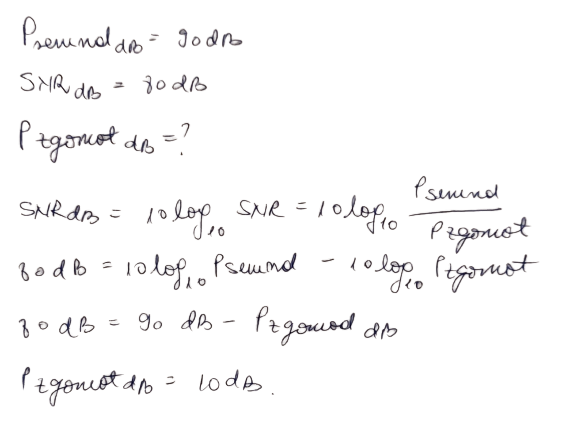 Psemnal dB = 90 dB
SNR dB = 80 dB
P zgomot dB = ?
SNR dB = 10 log10 SNR = 10 log10 Psemnal / Pzgomot
80 dB = 10 log10 Psemnal - 10 log10 Pzgomot
80 dB = 90 dB - Pzgomod dB
Pzgomot dB = 10 dB.